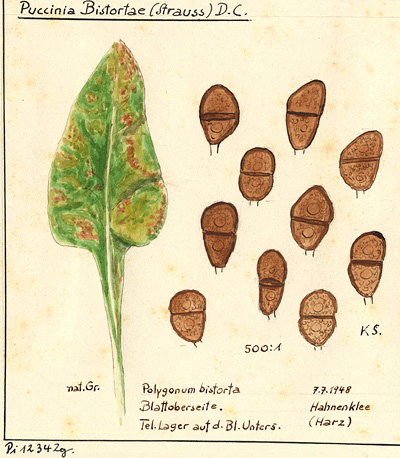 Puccinia Bistortae (Strauss) D.C.
K S.
500:1
nat. Gr.
Polygonum bistorta
Blattoberseite.
Tel. Lager auf d. Bl. Unters.
7.7.1948
Hahnenklee
(Harz)
Pi 12342g.